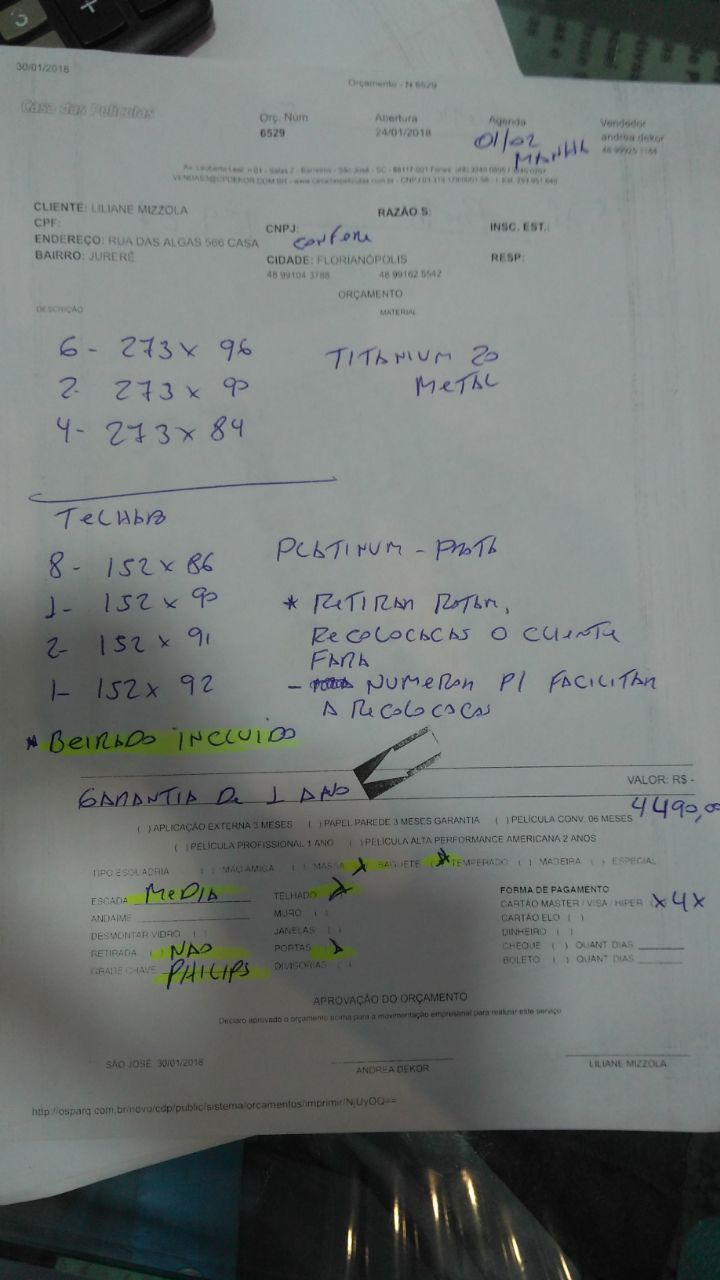 30/01/2018
Orçamento - N 6529
Casa das Películas
Orç. Num
6529
Abertura
24/01/2018
Agenda
01/02
MANHÃ
Vendedor
andrea dekor
CLIENTE: LILIANE MIZZOLA
RAZÃO S:
CPF:
CNPJ:
INSC. EST.:
ENDEREÇO: RUA DAS ALGAS 566 CASA
BAIRRO: JURERÊ
CIDADE: FLORIANÓPOLIS
RESP:
48 99104 3788 48 99162 5542
ORÇAMENTO
DESCRIÇÃO
MATERIAL
6- 273 x 96 TITANIUM 20
2- 273 x 90 METAL
4- 273 x 84
TELHADO
8- 152 x 86 PLATINUM - PRATA
1- 152 x 90 * RETIRAR ROTAM,
2- 152 x 91 RECOLOCACAO O CLIENTE
FARA
1- 152 x 92 - NUMERAR P/ FACILITAR
A RECOLOCACAO
* BEIRADO INCLUIDO
VALOR: R$ -
GARANTIA DE 1 ANO
4490,00
( ) APLICAÇÃO EXTERNA 3 MESES ( ) PAPEL PAREDE 3 MESES GARANTIA ( ) PELÍCULA CONV. 06 MESES
( ) PELÍCULA PROFISSIONAL 1 ANO ( ) PELÍCULA ALTA PERFORMANCE AMERICANA 2 ANOS
TIPO ESQUADRIA ( ) MÃO AMIGA ( ) MASSA (X) BAGUETE (X) TEMPERADO ( ) MADEIRA ( ) ESPECIAL
ESCADA MEDIA
ANDAIME
DESMONTAR VIDRO ( )
RETIRADA ( ) NAO
GRADE CHAVE PHILIPS
TELHADO (X)
MURO ( )
JANELAS ( )
PORTAS (X)
DIVISÓRIAS ( )
FORMA DE PAGAMENTO
CARTÃO MASTER / VISA / HIPER (X 4X
CARTÃO ELO ( )
DINHEIRO ( )
CHEQUE ( ) QUANT DIAS
BOLETO ( ) QUANT DIAS
APROVAÇÃO DO ORÇAMENTO
Declaro aprovado o orçamento acima para a movimentação empresarial para realizar este serviço
SÃO JOSÉ, 30/01/2018
ANDREA DEKOR
LILIANE MIZZOLA
http://osparq.com.br/novo/cdp/public/sistema/orcamentos/imprimir/NjUyOQ==